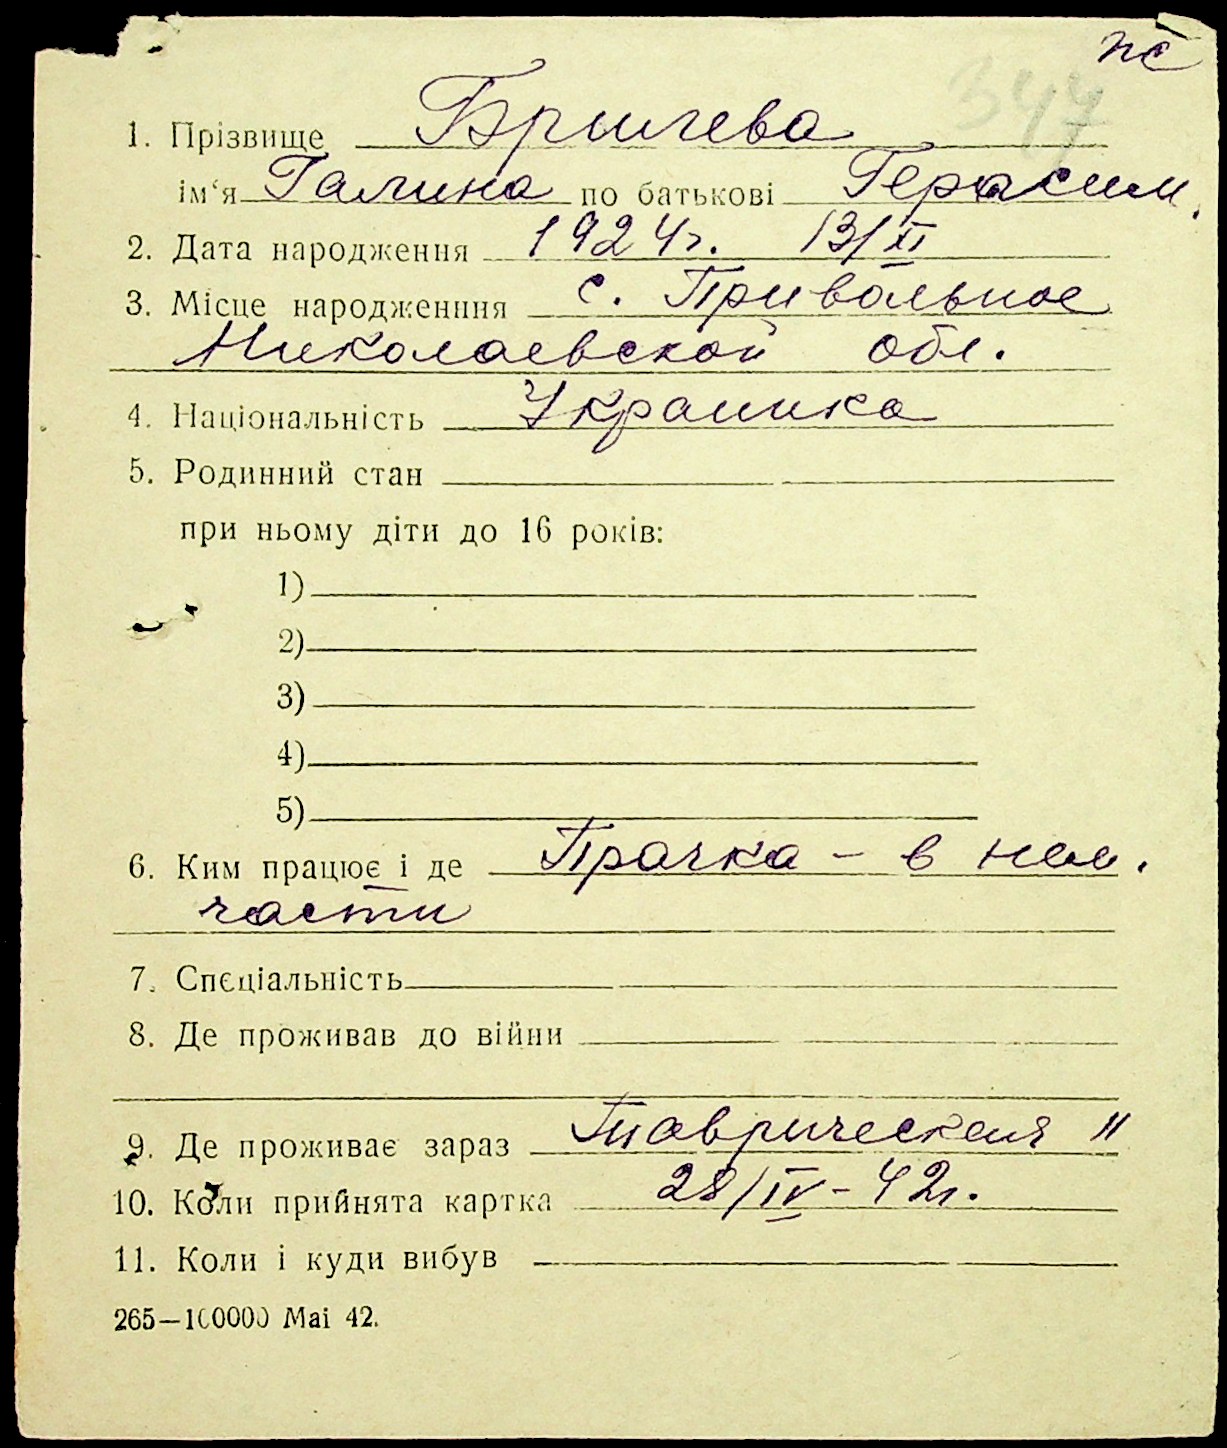 пс
347
1. Прізвище Брычева
ім‘я Галина по батькові Герасим.
2. Дата народження 1924г. 13/XI
3. Місце народженння с. Привольное
Николаевской обл.
4. Національність Украинка
5. Родинний стан
при ньому діти до 16 років:
1)
2)
3)
4)
5)
6. Ким працює і де Прачка – в нем.
части
7. Спєціальність
8. Де проживав до війни
9. Де проживає зараз Таврическая 11
10. Коли прийнята картка 28/IV – 42г.
11. Коли і куди вибув
265—100000 Mai 42.